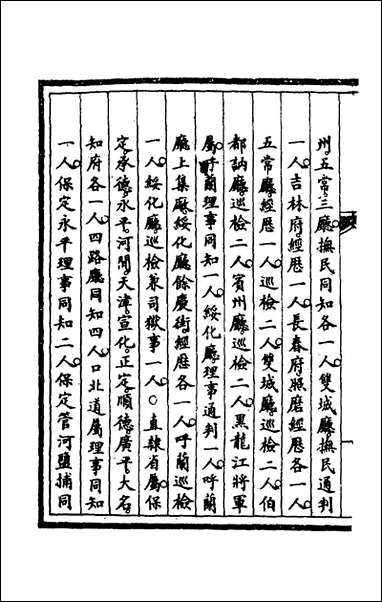 州五常三廳撫民同知各一人雙城廳撫民通判
一人吉林府經歷一人長春府照磨經歷各一人
五常廳經歷一人巡檢二人雙城廳巡檢二人伯
都訥廳巡檢二人賓州廳巡檢二人黑龍江將軍
屬呼蘭理事同知一人綏化廳理事通判一人呼蘭
廳上集廠綏化廳餘慶街經歷各一人呼蘭巡檢
一人綏化廳巡檢兼司獄事一人○直隸省屬保
定承德永平河間天津宣化正定順德廣平大名
知府各一人四路廳同知四人口北道屬理事同知
一人保定永平理事同知二人保定管河鹽捕同